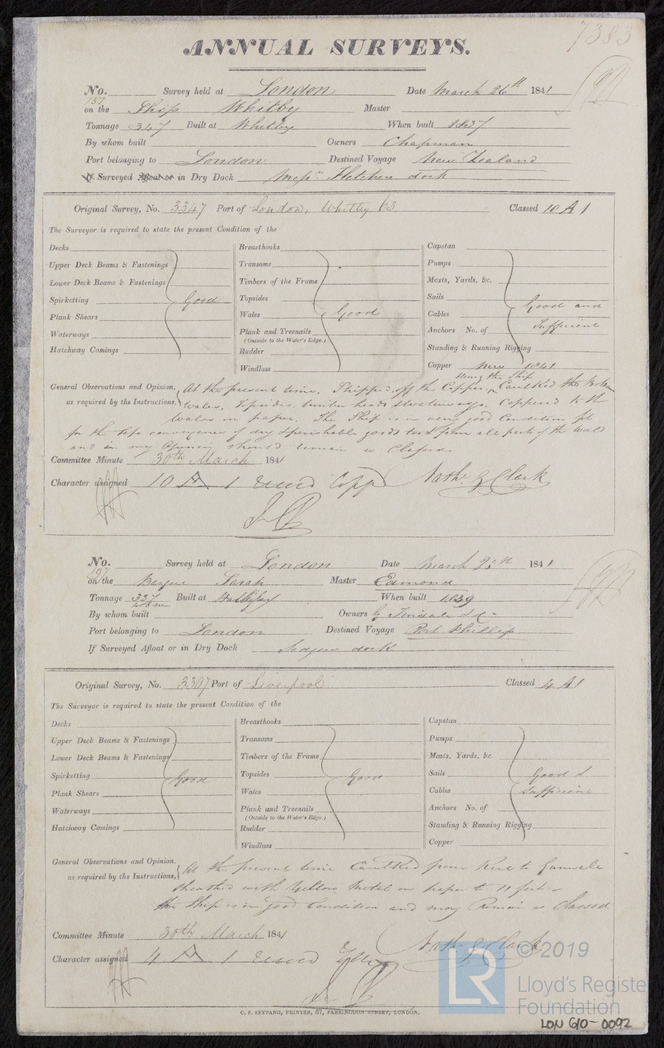 7383
ANNUAL SURVEYS.
No. 157 Survey held at London Date March 26th 1841
on the Ship Whitby Master
Tonnage 347 Built at Whitby When built 1837
By whom built Owners Chapman
Port belonging to London Destined Voyage New Zealand
If Surveyed Afloat or in Dry Dock Messrs Fletchers dock
Original Survey, No. 3347 Port of London, Whitby 63 Classed 10 A 1
The Surveyor is required to state the present Condition of the
Decks Breasthooks Capstan
Upper Deck Beams & Fastenings Transoms Pumps
Lower Deck Beams & Fastenings Timbers of the Frame Masts, Yards, &c.
Spirketting Good Topsides Sails Good and
Plank Shears Wales Good Cables Sufficient
Waterways Plank and Treenails Anchors No. of
(Outside to the Water's Edge.)
Hatchway Comings Rudder Standing & Running Rigging
Windlass Copper new 1841
General Observations and Opinion, At the present time. Stripped off the Copper, Caulked the
as required by the Instructions, Wales, Topsides, timber heads Waterways, Coppered to the
Wales on paper. The Ship is in very good Condition fit
for the safe conveyance of dry & perishable goods to & from all parts of the World
and in my Opinion should remain as Classed
Committee Minute 30th March 1841
Character assigned 10 A 1 Copp Nathl G Clark
No. 197 Survey held at London Date March 1841
on the Barque Sarah Master Edmond
Tonnage 337 Built at When built 1839
By whom built Owners
Port belonging to London Destined Voyage Port Phillip
If Surveyed Afloat or in Dry Dock dock
Original Survey, No. 3397 Port of Liverpool Classed 4 A 1
The Surveyor is required to state the present Condition of the
Decks Breasthooks Capstan
Upper Deck Beams & Fastenings Transoms Pumps
Lower Deck Beams & Fastenings Timbers of the Frame Masts, Yards, &c.
Spirketting Good Topsides Good Sails Good &
Plank Shears Wales Cables Sufficient
Waterways Plank and Treenails Anchors No. of
(Outside to the Water's Edge.)
Hatchway Comings Rudder Standing & Running Rigging
Windlass Copper
General Observations and Opinion, At the present time Caulked from Keel to Gunwale
as required by the Instructions, sheathed with Yellow Metal on paper to 11 feet
the Ship is in good Condition and may Remain as Classed
Committee Minute 30th March 1841
Character assigned 4 A 1 Nathl G Clark
C. F. SEYFANG, PRINTER, 57, FARRINGDON STREET, LONDON.
LR
© 2019
Lloyd's Register
Foundation
LDN 610-0092